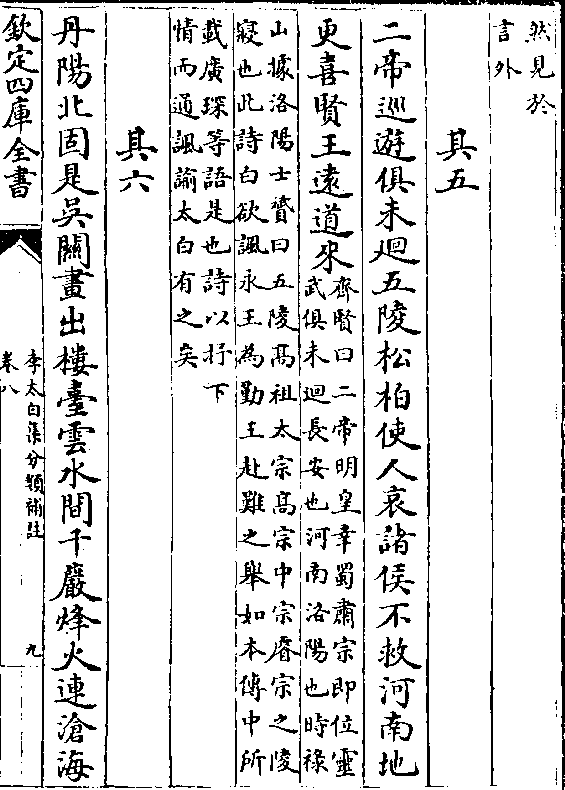 然見於
言外
其五
二帝巡遊俱未廻五陵松柏使人哀諸侯不救河南地
更喜賢王遠道來
齊賢曰二帝明皇幸蜀肅宗即位靈
武俱未廻長安也河南洛陽也時祿
山據洛陽士贇曰五陵髙祖太宗髙宗中宗睿宗之陵
寢也此詩白欲諷永王為勤王赴難之舉如本傳中所
載廣琛等語是也詩以抒下
情而通諷諭太白有之矣
其六
丹陽北固是吳關畫出樓臺雲水間千巖烽火連滄海
欽定四庫全書
李太白集分類補註
卷八
九